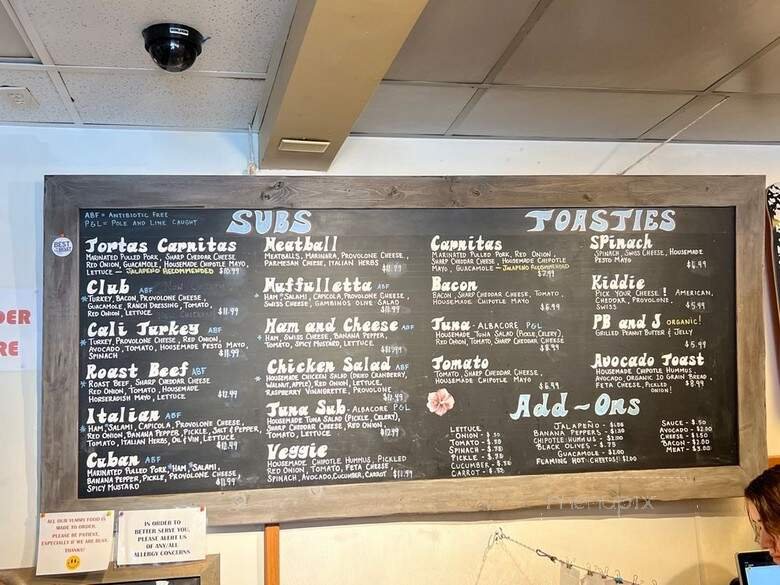 ABF = ANTIBIOTIC FREE
P&L = POLE AND LINE CAUGHT
SUBS
TORTAS CARNITAS
MARINATED PULLED PORK, SHARP CHEDDAR CHEESE,
RED ONION, GUACAMOLE, HOUSEMADE CHIPOTLE MAYO,
LETTUCE — JALAPEÑO RECOMMENDED $10.99
CLUB ABF
*TURKEY, BACON, PROVOLONE CHEESE,
GUACAMOLE, RANCH DRESSING, TOMATO,
RED ONION, LETTUCE. $11.99
CALI TURKEY ABF
*TURKEY, PROVOLONE CHEESE, RED ONION,
AVOCADO, TOMATO, HOUSEMADE PESTO MAYO,
SPINACH $11.99
ROAST BEEF ABF
*ROAST BEEF, SHARP CHEDDAR CHEESE,
RED ONION, TOMATO, HOUSEMADE
HORSERADISH MAYO, LETTUCE $12.99
ITALIAN ABF
*HAM, SALAMI, CAPICOLA, PROVOLONE CHEESE,
RED ONION, BANANA PEPPER, PICKLE, SALT & PEPPER,
TOMATO, ITALIAN HERBS, OIL & VIN, LETTUCE
$12.49
CUBAN ABF
MARINATED PULLED PORK, *HAM, *SALAMI,
BANANA PEPPER, PICKLE, PROVOLONE CHEESE
SPICY MUSTARD $11.99
MEATBALL
MEATBALLS, MARINARA, PROVOLONE CHEESE,
PARMESAN CHEESE, ITALIAN HERBS
MUFFULLETTA ABF
*HAM, SALAMI, CAPICOLA, PROVOLONE CHEESE,
SWISS CHEESE, GAMBINOS OLIVE SALAD
$11.99
HAM AND CHEESE ABF
*HAM, SWISS CHEESE, BANANA PEPPER,
TOMATO, SPICY MUSTARD, LETTUCE
CHICKEN SALAD ABF
*HOUSEMADE CHICKEN SALAD (DRIED CRANBERRY,
WALNUT, APPLE), RED ONION, LETTUCE,
RASPBERRY VINAIGRETTE, PROVOLONE
TUNA SUB - ALBACORE P&L
HOUSEMADE TUNA SALAD (PICKLE, CELERY),
SHARP CHEDDAR CHEESE, RED ONION,
TOMATO, LETTUCE $12.99
VEGGIE
HOUSEMADE CHIPOTLE HUMMUS, PICKLED
RED ONION, TOMATO, FETA CHEESE,
SPINACH, AVOCADO, CUCUMBER, CARROT $11.99
TOASTIES
CARNITAS
MARINATED PULLED PORK, RED ONION,
SHARP CHEDDAR CHEESE, HOUSEMADE CHIPOTLE
MAYO, GUACAMOLE — JALAPEÑO RECOMMENDED
$7.99
BACON
BACON, SHARP CHEDDAR CHEESE, TOMATO,
HOUSEMADE CHIPOTLE MAYO
$6.99
TUNA - ALBACORE P&L
HOUSEMADE TUNA SALAD (PICKLE, CELERY),
RED ONION, TOMATO, SHARP CHEDDAR CHEESE
$8.99
TOMATO
TOMATO, SHARP CHEDDAR CHEESE,
HOUSEMADE CHIPOTLE MAYO
$6.49
SPINACH
SPINACH, SWISS CHEESE, HOUSEMADE
PESTO MAYO
$6.49
KIDDIE
PICK YOUR CHEESE! AMERICAN,
CHEDDAR, PROVOLONE,
SWISS $5.49
PB AND J ORGANIC!
GRILLED PEANUT BUTTER & JELLY
$5.49
AVOCADO TOAST
HOUSEMADE CHIPOTLE HUMMUS,
AVOCADO, ORGANIC 20 GRAIN BREAD,
FETA CHEESE, PICKLED ONION! $8.99
ADD-ONS
LETTUCE
ONION - $.50
TOMATO - $.50
SPINACH - $.50
PICKLE - $.50
CUCUMBER - $.50
CARROT - $.50
JALAPEÑO -
BANANA PEPPERS -
CHIPOTLE HUMMUS -
BLACK OLIVES -
GUACAMOLE - $2.00
FLAMING HOT CHEETOS! $1.00
SAUCE - $.50
AVOCADO - $2.00
CHEESE - $1.50
BACON - $2.00
MEAT - $3.00
BEST
DER
RE
ALL OUR YUMMY FOOD IS
MADE TO ORDER.
PLEASE BE PATIENT,
ESPECIALLY IF WE ARE BUSY.
THANKS!
IN ORDER TO
BETTER SERVE YOU,
PLEASE ALERT US
OF ANY/ALL
ALLERGY CONCERNS
menupix